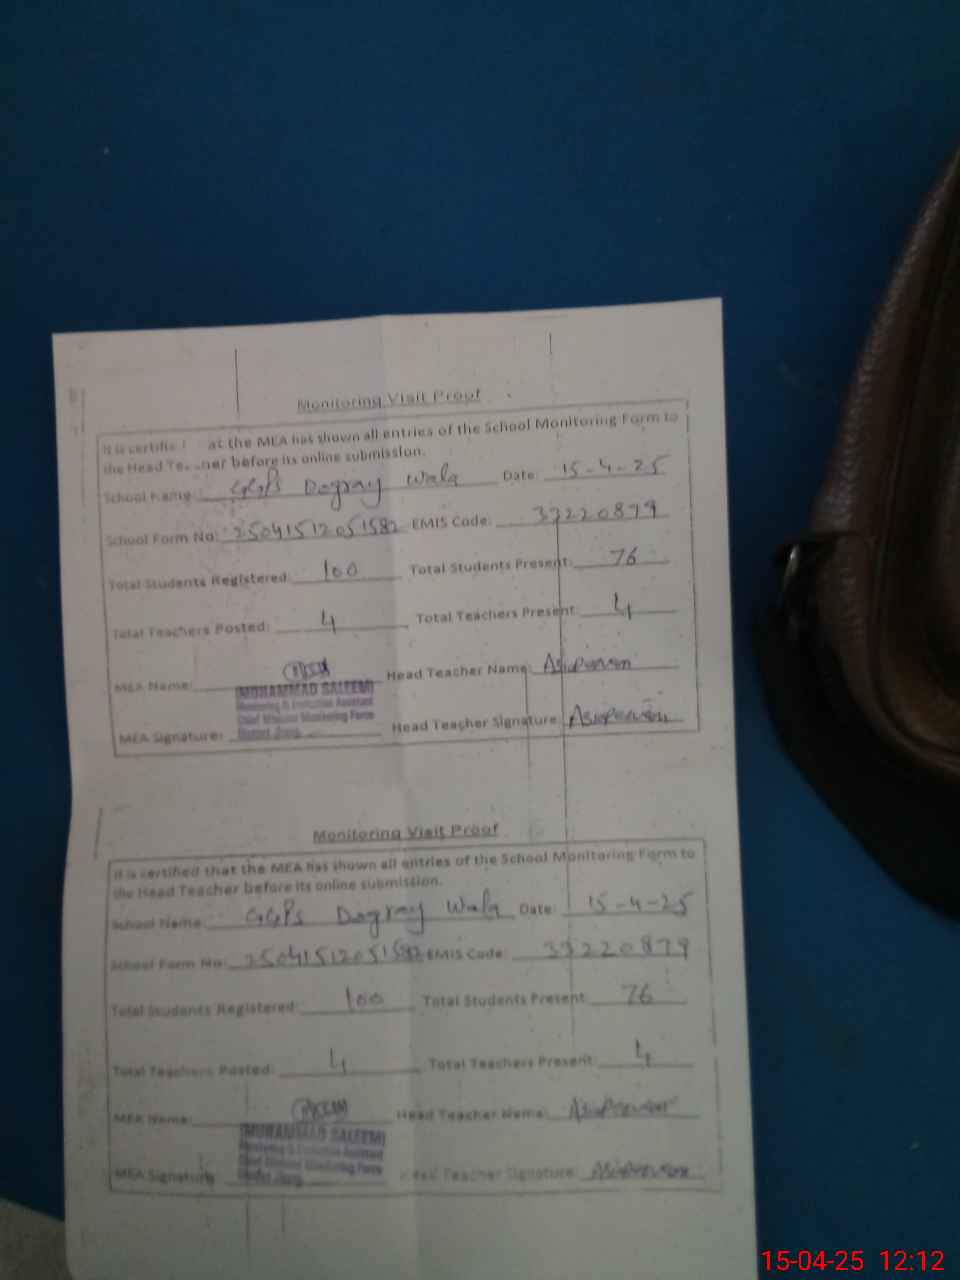 Monitoring Visit Proof
It is certified at the MEA has shown all entries of the School Monitoring Form to
the Head Teacher before its online submission.
School Name: GGPS Dogray Wala Date: 15-4-25
School Form No: 25041512051582 EMIS Code: 33220879
Total Students Registered: 100 Total Students Present: 76
Total Teachers Posted: 4 Total Teachers Present: 4
MEA Name: Head Teacher Name: Asia Parveen
MUHAMMAD SALEEM
Monitoring & Evaluation Assistant
Chief Minister Monitoring Force
District Jhang.
MEA Signature: Head Teacher Signature: Asia Parveen
Monitoring Visit Proof
It is certified that the MEA has shown all entries of the School Monitoring Form to
the Head Teacher before its online submission.
School Name: GGPS Dogray Wala Date: 15-4-25
School Form No: 25041512051582 EMIS Code: 33220879
Total Students Registered: 100 Total Students Present: 76
Total Teachers Posted: 4 Total Teachers Present: 4
MEA Name: Head Teacher Name: Asia Parveen
MUHAMMAD SALEEM
Monitoring & Evaluation Assistant
Chief Minister Monitoring Force
District Jhang.
MEA Signature: Head Teacher Signature: Asia Parveen
15-04-25 12:12